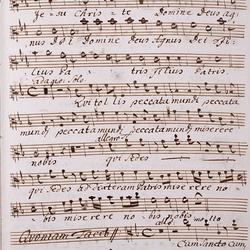 Je- su Chris- te Domine Deus Ag-
nus Dei Domine Deus Agnus Dei Fi-
lius Pa- tris Filius Patris
adagio solo
Qui tollis peccata mundi peccata
mundi peccata mundi peccata mundi miserere
allegro
nobis qui sedes
qui sedes ad dexteram Patris miserere no-
bis miserere no- bis nobis
allo molto
Quoniam tacet
Cum Sancto cum